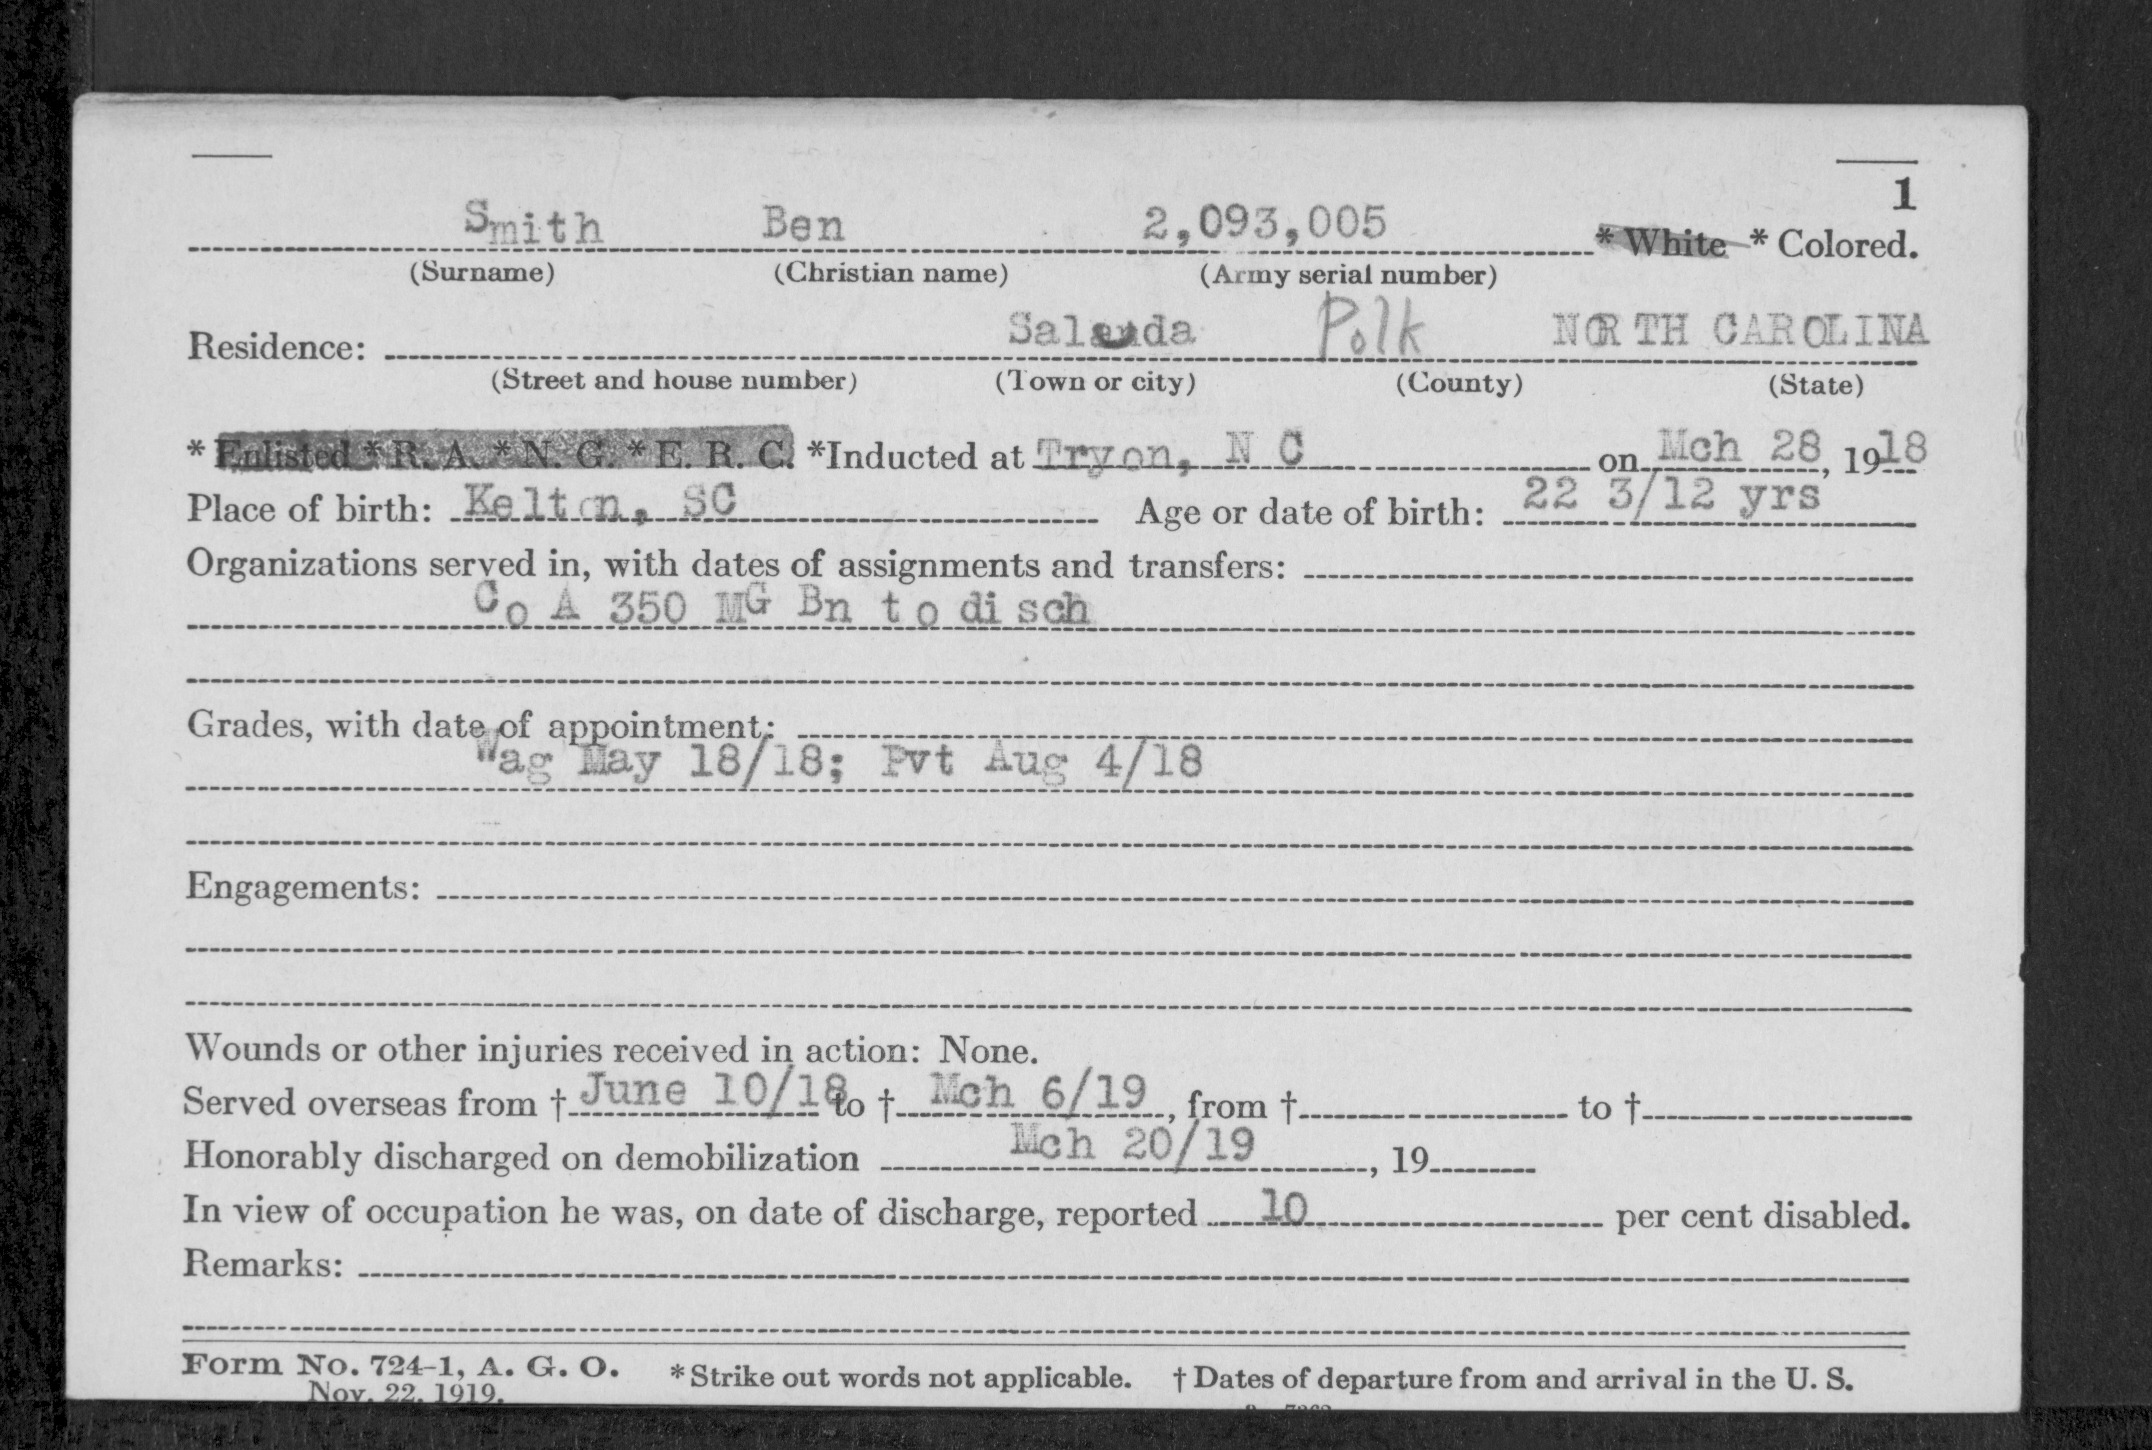 1
Smith Ben 2,093,005 * White * Colored.
(Surname) (Christian name) (Army serial number)
Residence: Saluda Polk NORTH CAROLINA
(Street and house number) (Town or city) (County) (State)
* Enlisted * R. A. * N. G. * E. R. C. *Inducted at Tryon, N C on Mch 28, 1918
Place of birth: Kelton, SC Age or date of birth: 22 3/12 yrs
Organizations served in, with dates of assignments and transfers:
Co A 350 MG Bn to disch
Grades, with date of appointment:
Wag May 18/18; Pvt Aug 4/18
Engagements:
Wounds or other injuries received in action: None.
Served overseas from † June 10/18 to † Mch 6/19, from † to †
Honorably discharged on demobilization Mch 20/19, 19
In view of occupation he was, on date of discharge, reported 10 per cent disabled.
Remarks:
Form No. 724-1, A. G. O. * Strike out words not applicable. † Dates of departure from and arrival in the U. S.
Nov. 22, 1919.